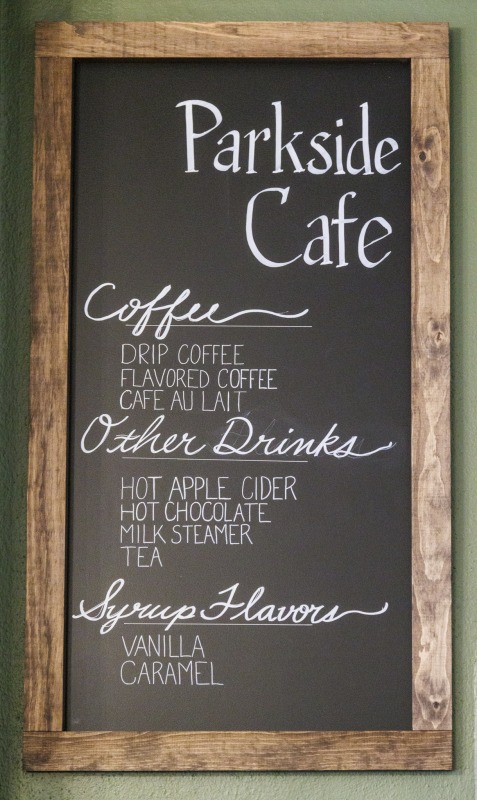 Parkside
Cafe
Coffee
DRIP COFFEE
FLAVORED COFFEE
CAFE AU LAIT
Other Drinks
HOT APPLE CIDER
HOT CHOCOLATE
MILK STEAMER
TEA
Syrup Flavors
VANILLA
CARAMEL